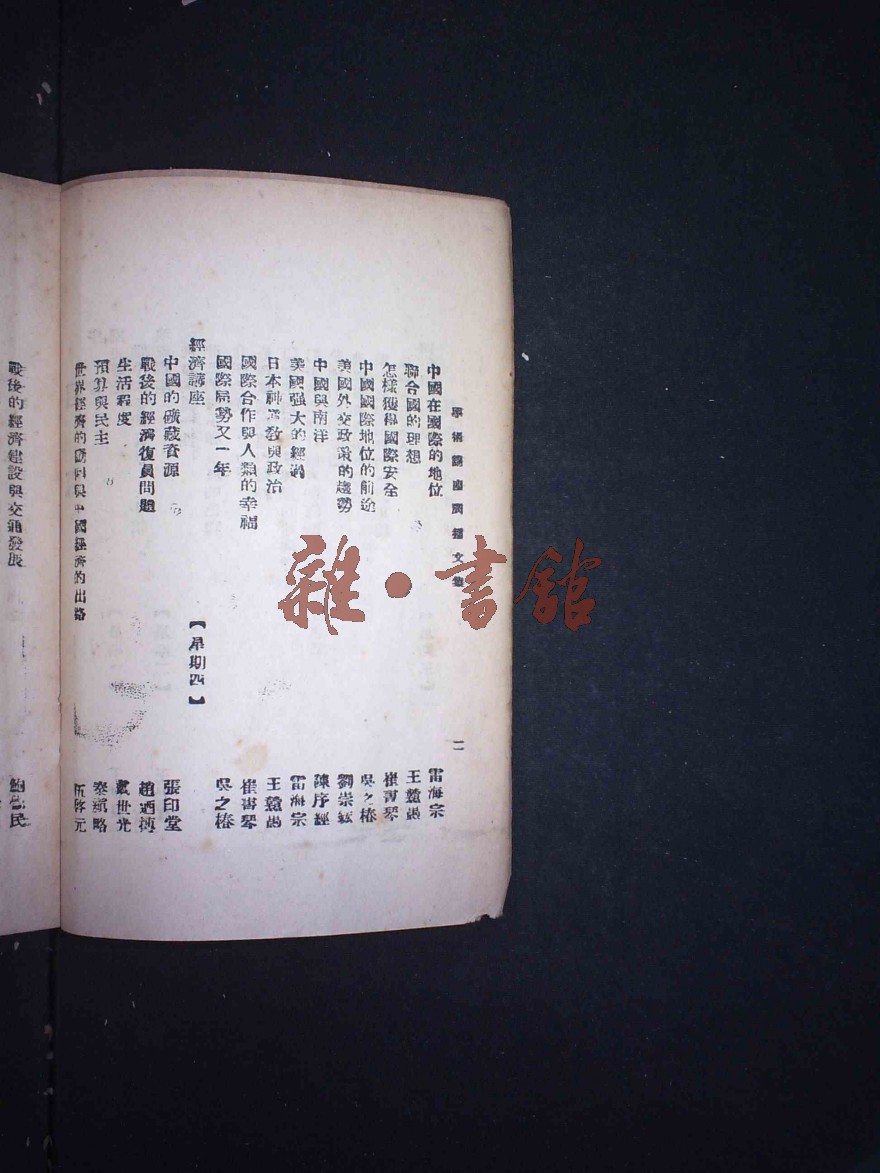 學術講座廣播文集
二
中國在國際的地位 雷海宗
聯合國的理想 王贛愚
怎樣獲得國際安全 崔書琴
中國國際地位的前途 吳之椿
美國外交政策的趨勢 劉崇鋐
中國與南洋 陳序經
美國強大的經過 雷海宗
日本神道教與政治 王贛愚
國際合作與人類的幸福 崔書琴
國際局勢又一年 吳之椿
經濟講座 【星期四】
中國的礦藏資源 張印堂
戰後的經濟復員問題 趙迺摶
生活程度 戴世光
預算與民主 秦瓚
世界經濟的 與中國經濟的出路 伍啓元
戰後的經濟建設與交通發展 鮑 民
雜·書館